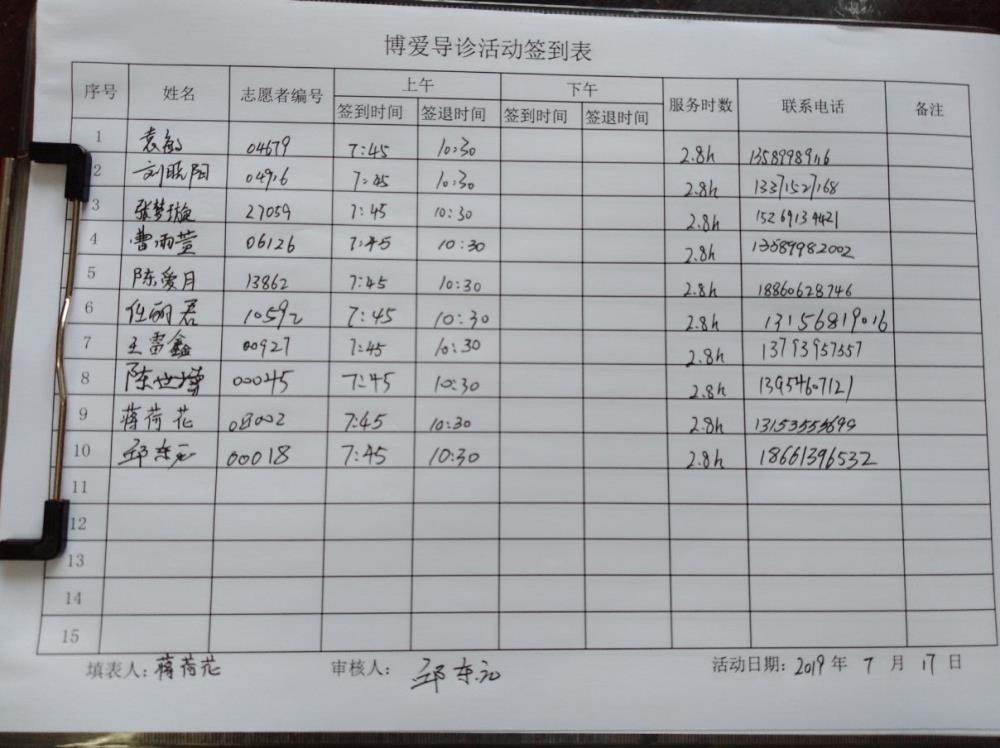 博爱导诊活动签到表
序号 姓名 志愿者编号 上午 下午 服务时数 联系电话 备注
签到时间 签退时间 签到时间 签退时间
1 袁敏 04679 7:45 10:30 2.8h
2 刘晓阳 04916 7:45 10:30 2.8h 13371527168
3 张梦璇 27059 7:45 10:30 2.8h 15269134421
4 曹雨萱 06126 7:45 10:30 2.8h 13589982002
5 陈爱月 13862 7:45 10:30 2.8h 18860628746
6 任丽君 10592 7:45 10:30 2.8h 13156819016
7 王雷鑫 00927 7:45 10:30 2.8h 13793957357
8 陈世 00045 7:45 10:30 2.8h 13954607121
9 蒋荷花 7:45 10:30 2.8h 13153555699
10 邱东元 00018 7:45 10:30 2.8h 18661396532
11
12
13
14
15
填表人：蒋荷花 审核人：邱东元 活动日期：2019年 7月 17日